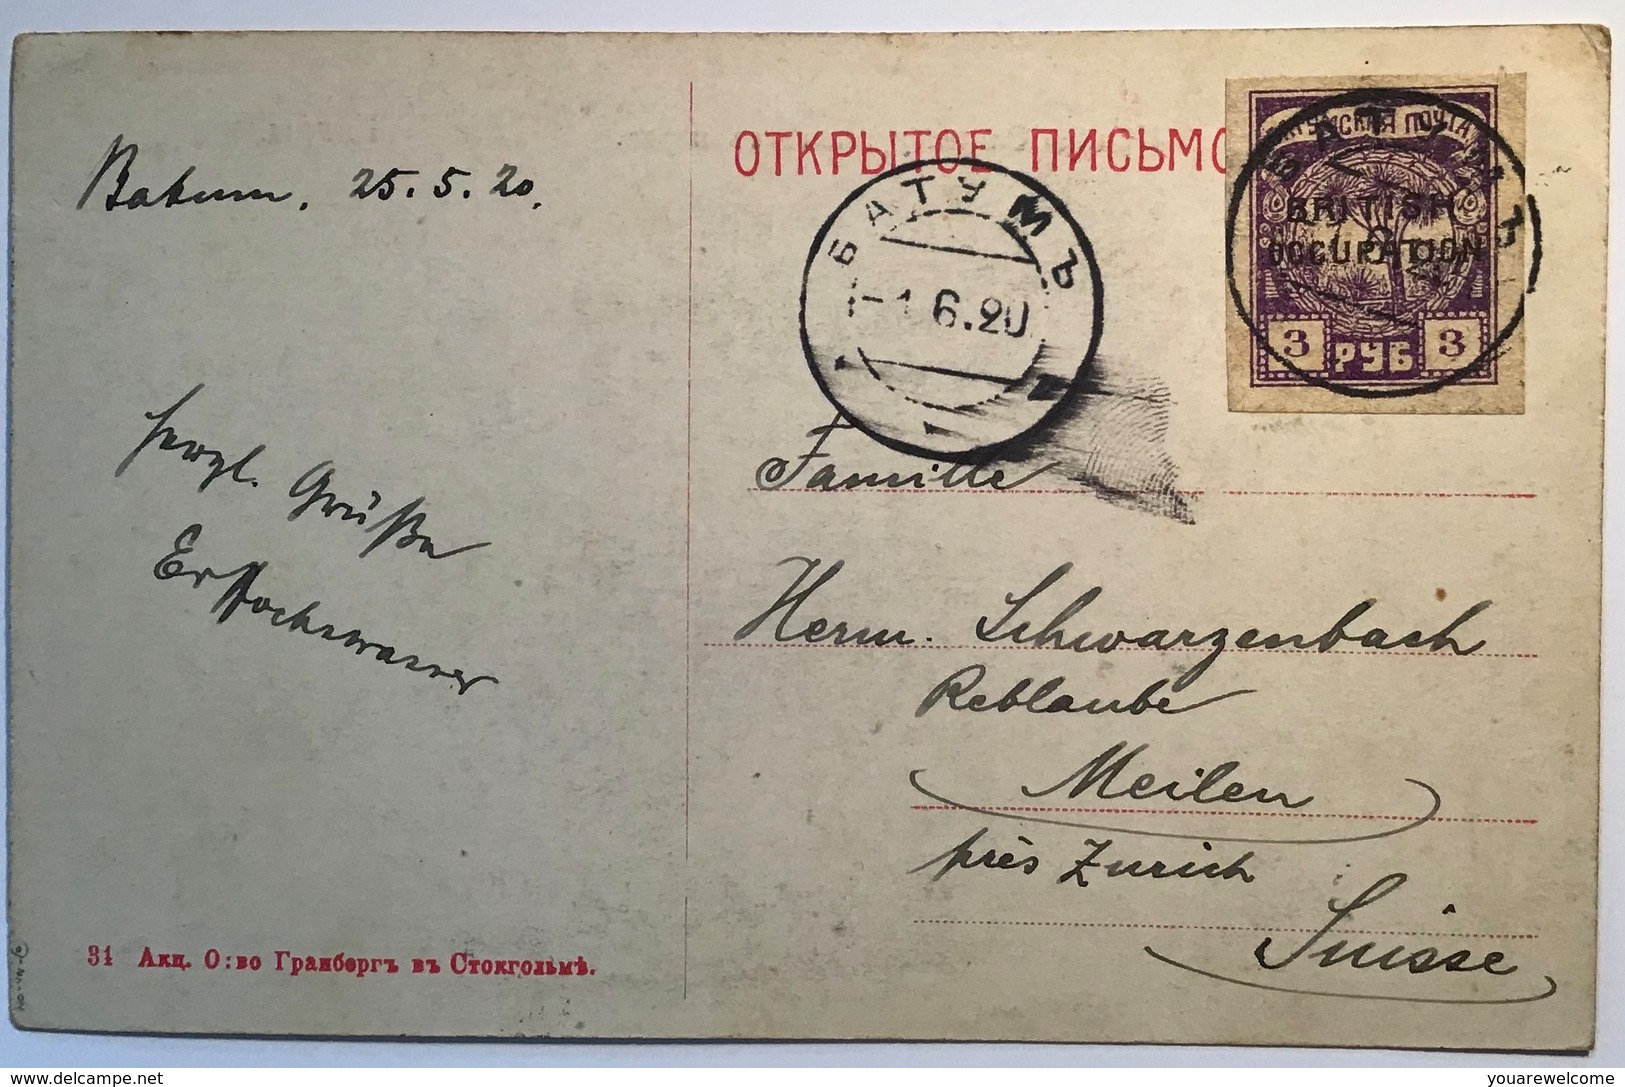 Batum, 25.5.20.
herzl. Grüße
ОТКРЫТОЕ ПИСЬМО
БАТУМЪ
-1 6.20
БАТУМСКАЯ ПОЧТА
БАТУМЪ
BRITISH
OCCUPATION
3 РУБ 3
Famille
Herm. Schwarzenbach
Reblaube
Meilen
près Zurich
Suisse
31 Акц. О:во Гранбергъ въ Стокгольмѣ.
delcampe.net
youarewelcome